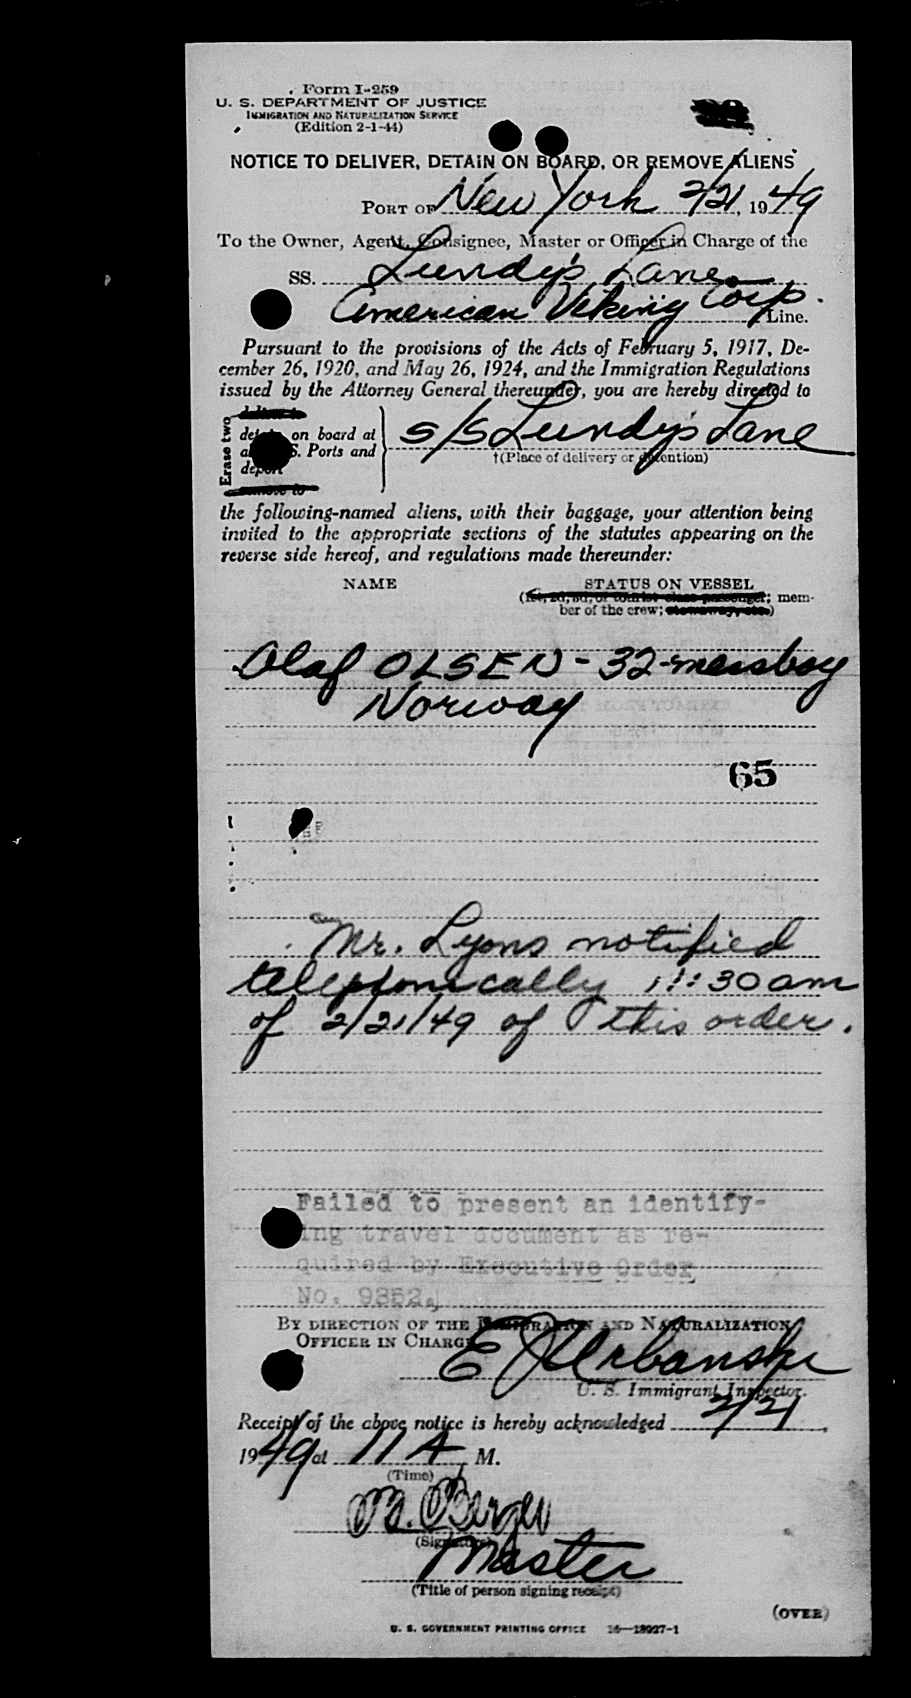 Form I-259
U. S. DEPARTMENT OF JUSTICE
IMMIGRATION AND NATURALIZATION SERVICE
(Edition 2-1-44)
NOTICE TO DELIVER, DETAIN ON BOARD, OR REMOVE ALIENS
PORT OF New York 2/21, 1949
To the Owner, Agent, Consignee, Master or Officer in Charge of the
SS. Lundy's Lane
American Viking Corp. Line.
Pursuant to the provisions of the Acts of February 5, 1917, De-
cember 26, 1920, and May 26, 1924, and the Immigration Regulations
issued by the Attorney General thereunder, you are hereby directed to
Erase two
deliver to
detain on board at
all U. S. Ports and
deport
remove to
s/s Lundy's Lane
†(Place of delivery or detention)
the following-named aliens, with their baggage, your attention being
invited to the appropriate sections of the statutes appearing on the
reverse side hereof, and regulations made thereunder:
NAME STATUS ON VESSEL
(1st, 2d, 3d, or tourist class passenger; mem-
ber of the crew; stowaway, etc.)
Olaf OLSEN - 32 - messboy
Norway
65
Mr. Lyons notified
telephonically 11:30 am
of 2/21/49 of this order.
Failed to present an identify-
ing travel document as re-
quired by Executive Order
No. 9352.
BY DIRECTION OF THE IMMIGRATION AND NATURALIZATION
OFFICER IN CHARGE
E J Urbanski
U. S. Immigrant Inspector.
Receipt of the above notice is hereby acknowledged 2/21,
1949 at 11 A M.
(Time)
M. Berger
(Signature)
Master
(Title of person signing receipt)
(OVER)
U. S. GOVERNMENT PRINTING OFFICE 16—13927-1